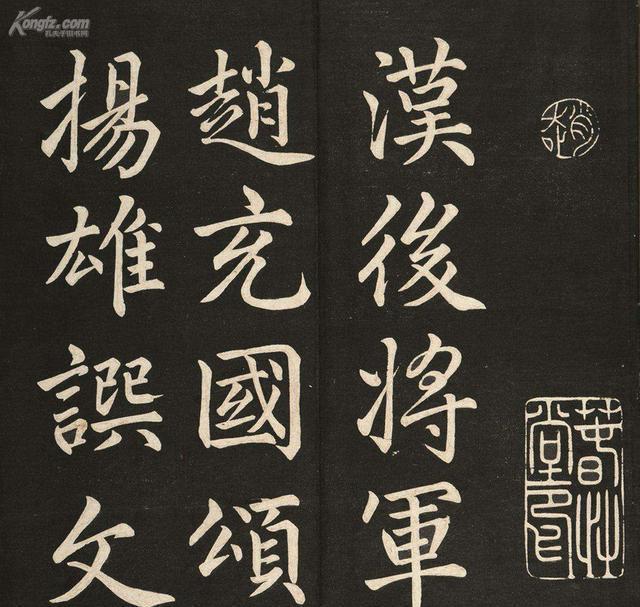 漢後將軍
趙充國頌
揚雄譔文
Kongfz.com
孔夫子旧书网